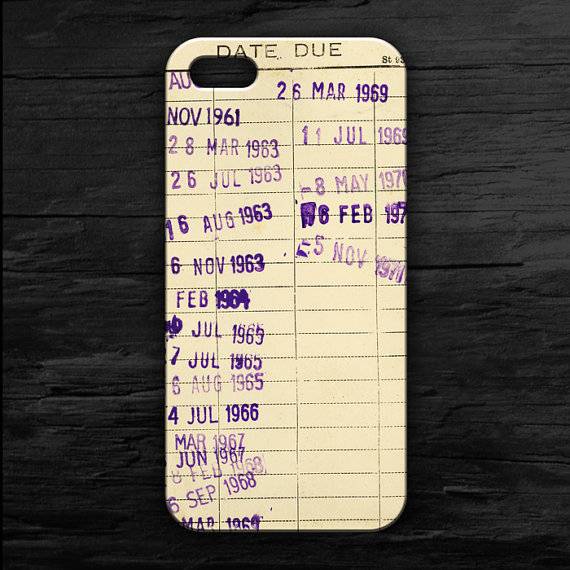 DATE DUE
St 93
AU
NOV 1961
28 MAR 1963
26 JUL 1963
16 AUG 1963
6 NOV 1963
FEB 1964
JUL 1965
7 JUL 1965
6 AUG 1965
4 JUL 1966
MAR 1967
JUN 1967
8 FEB 1968
6 SEP 1968
MAR 1969
26 MAR 1969
11 JUL 1969
-8 MAY 197
8 FEB 197
-5 NOV 1971